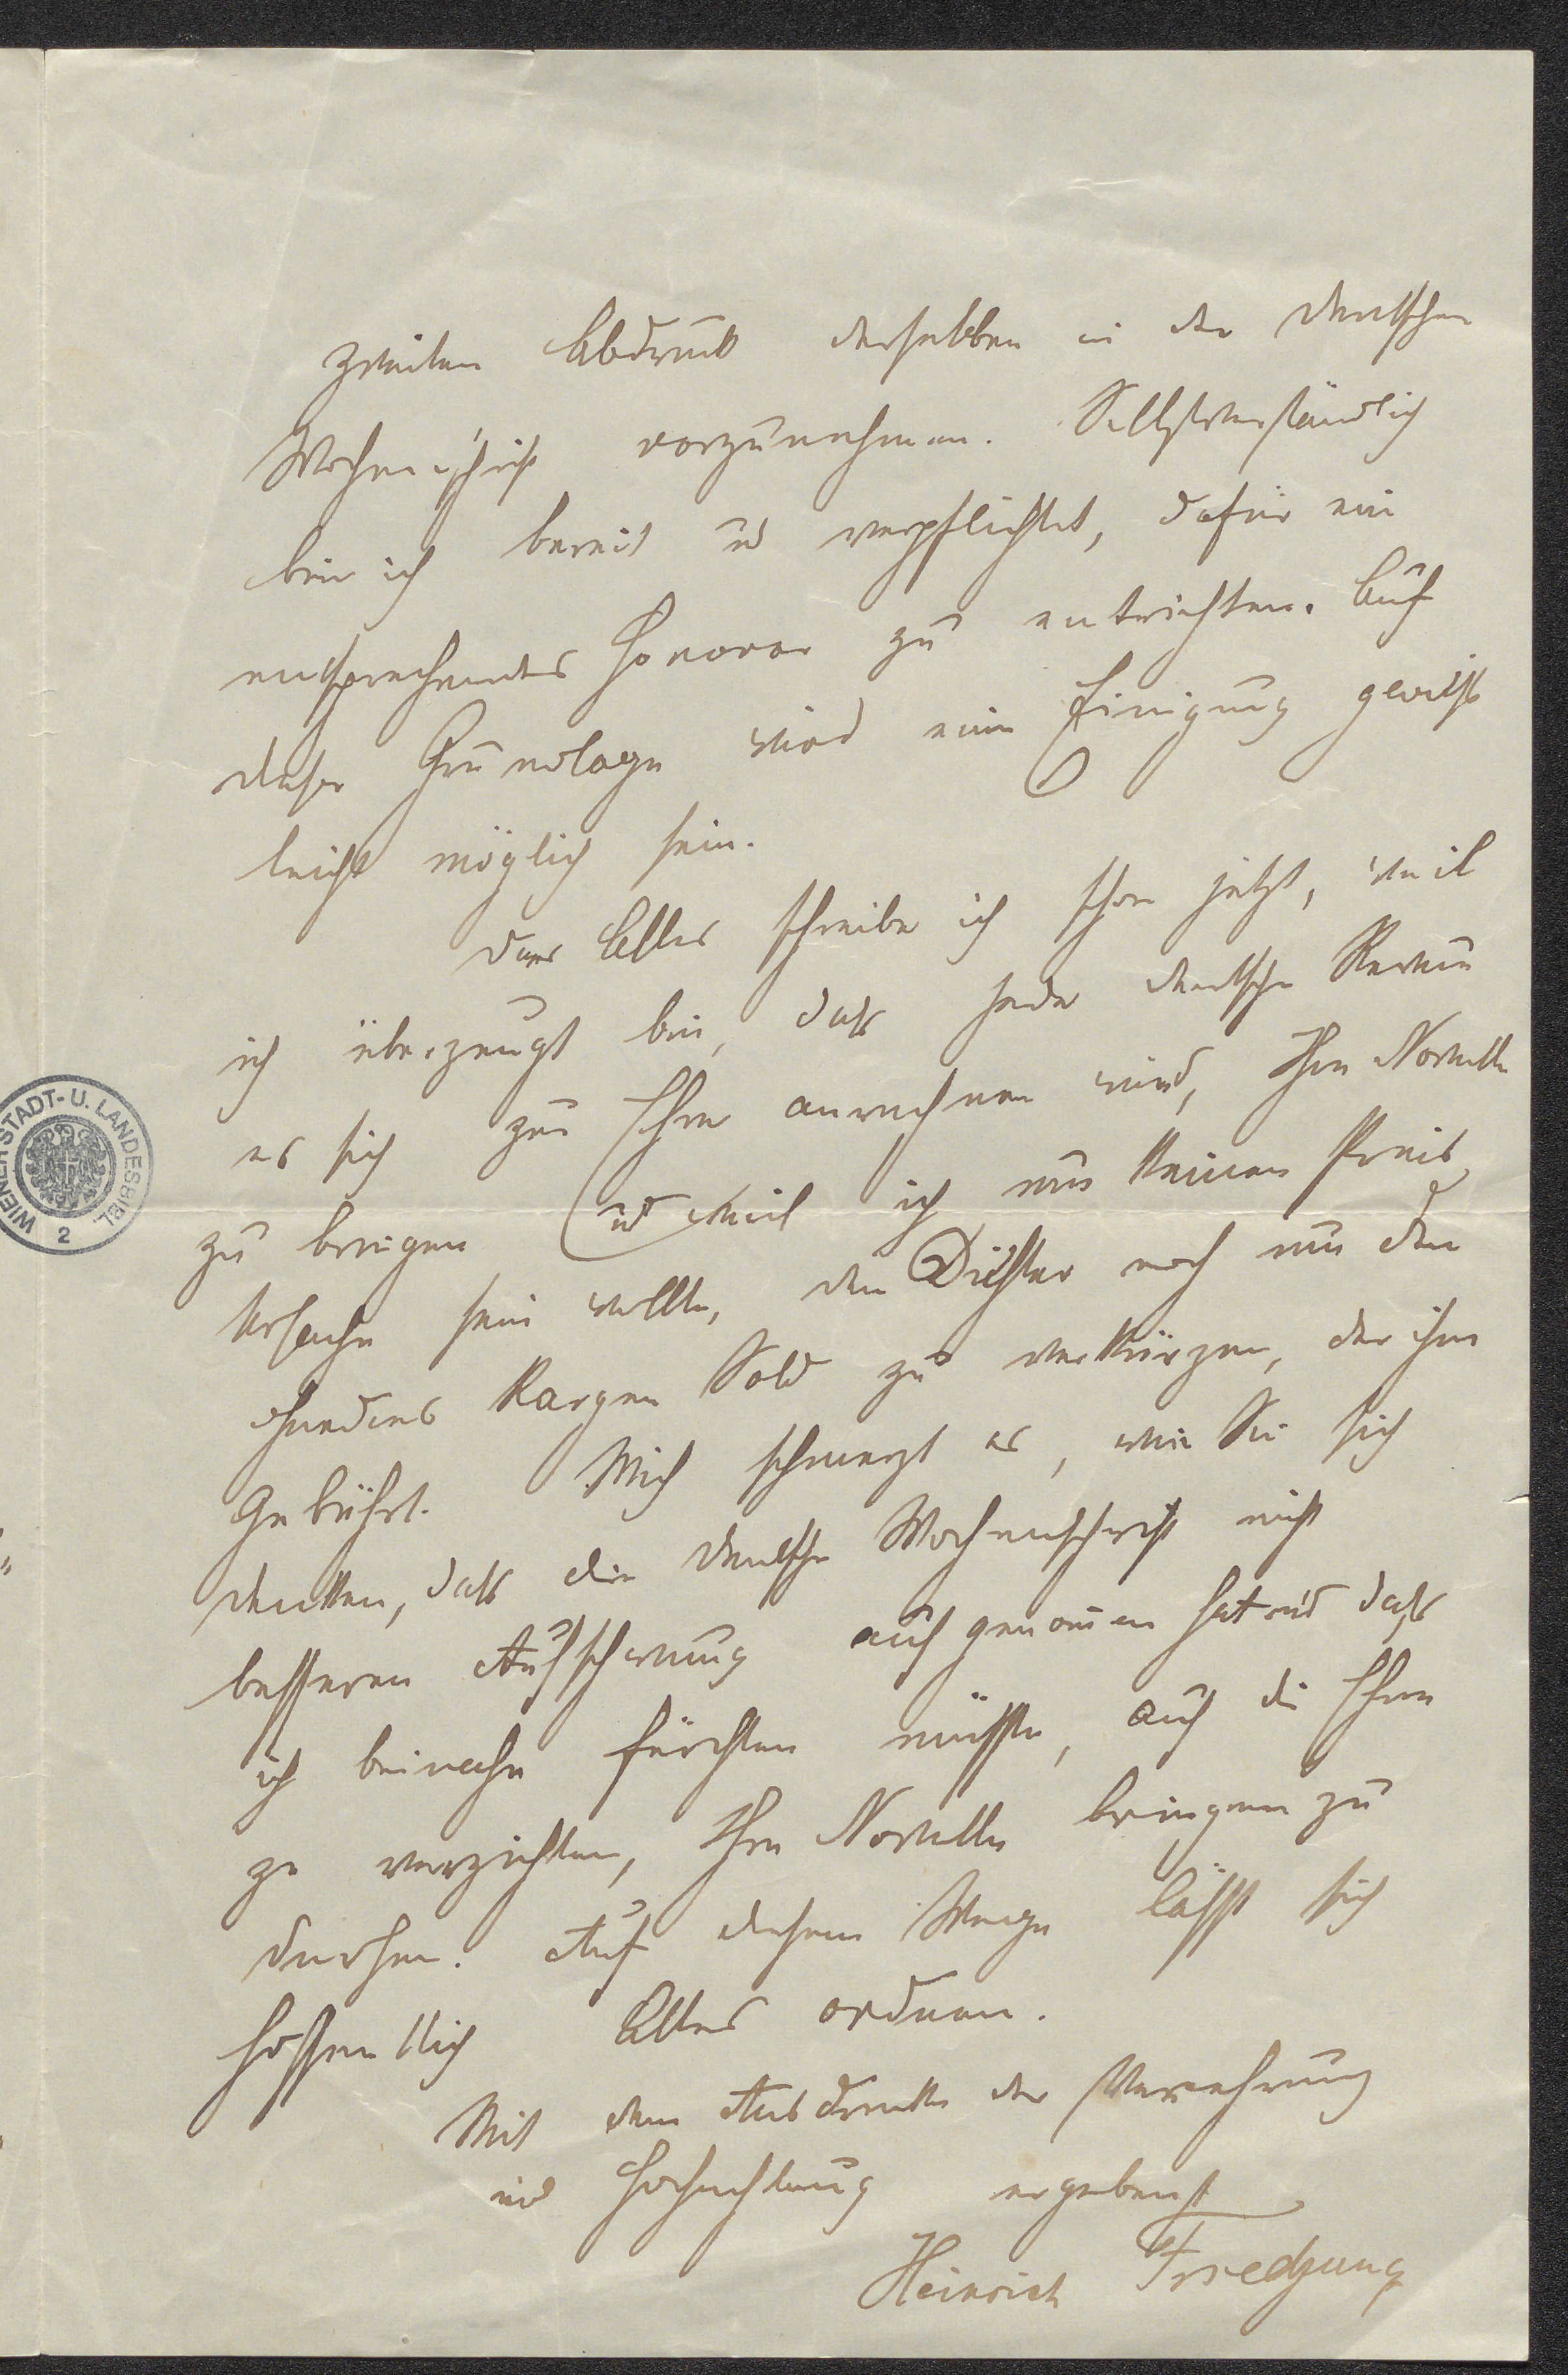 zweiten Abdruck derselben in der Deutschen
Wochenschrift vorzunehmen. Selbstverständlich
bin ich bereit und verpflichtet, dafür ein
entsprechendes Honorar zu entrichten. Auf
dieser Grundlage wird eine Einigung gewiß
leicht möglich sein.
Dies Alles schreibe ich schon jetzt, weil
ich überzeugt bin, daß jede deutsche Revue
es sich zur Ehre anrechnen wird, Ihre Novelle
zu bringen und weil ich um keinen Preis
Ursache sein wollte, den Dichter noch um den
ohnedies kargen Sold zu verkürzen, der ihm
gebührt. Mich schmerzt es, wie Sie sich
denken, daß die Deutsche Wochenschrift nicht
besseren Aufschwung aufgenom̄en hat und daß
ich beinahe fürchten müßte, auf die Ehre
zu verzichten, Ihre Novelle bringen zu
dürfen. Auf diesem Wege läßt sich
hoffentlich Alles ordnen.
Mit dem Ausdrucke der Verehrung
und Hochachtung ergebenst
Heinrich Friedjung
WIENER STADT- U. LANDESBIBL.
2